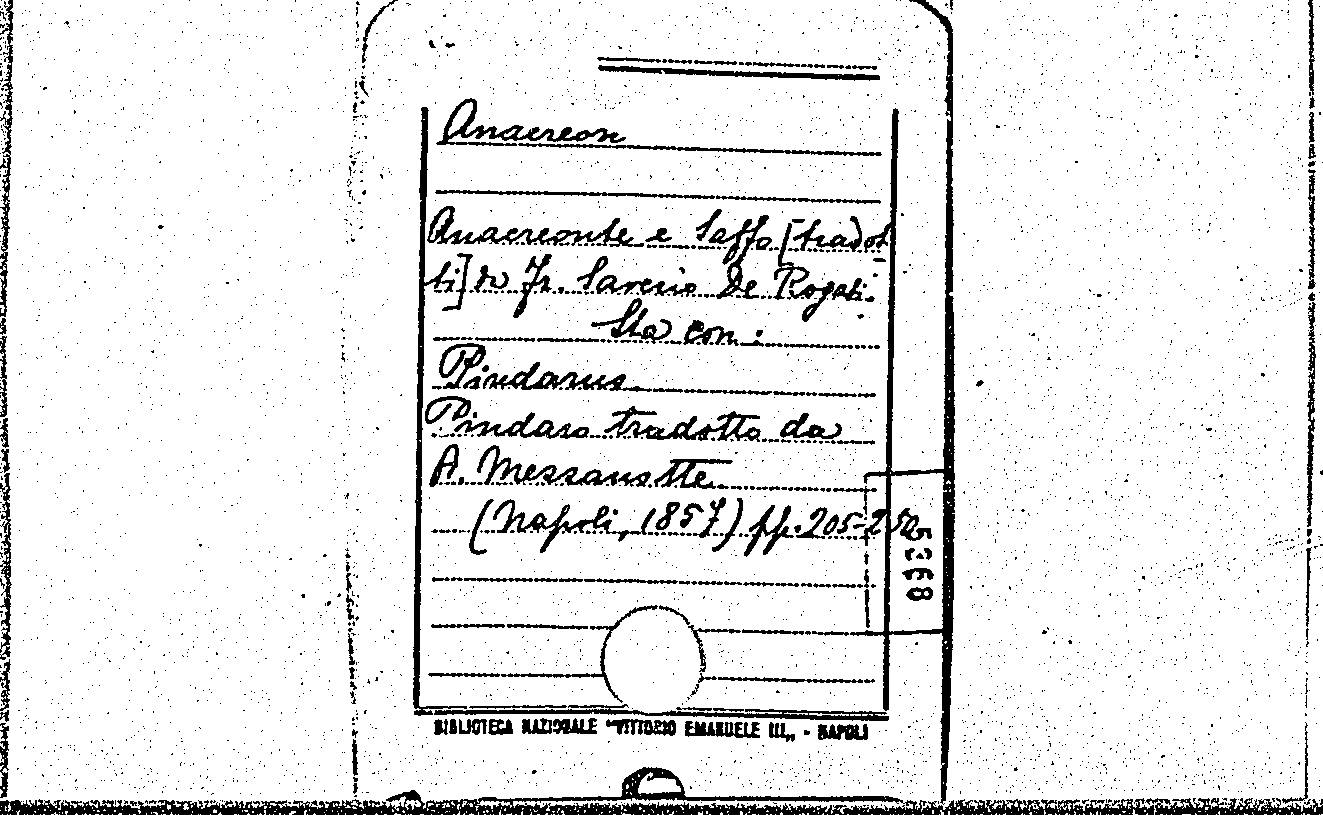 Anacreon
Anacreonte e Saffo [tradot
ti] da Fr. Saverio De Rogati.
Sta con:
Pindarus.
Pindaro tradotto da
A. Mezzanotte.
(Napoli, 1857) pp. 205-250
5368
BIBLIOTECA NAZIONALE "VITTORIO EMANUELE III„ - NAPOLI